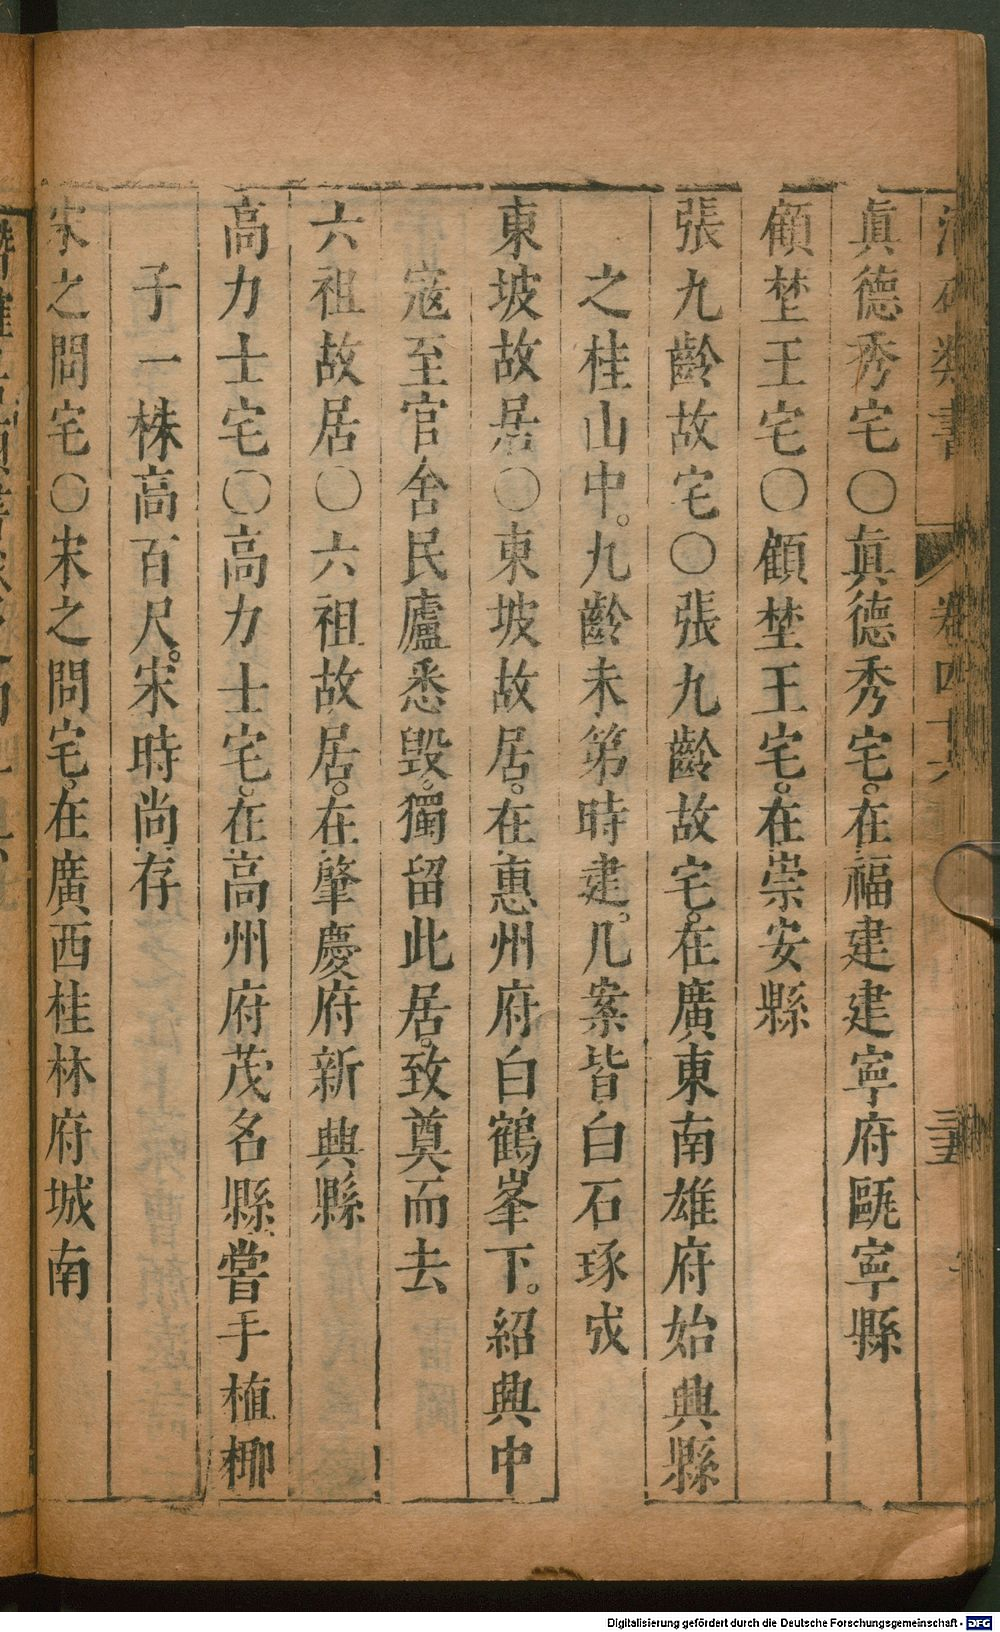 類書
卷四十六
眞德秀宅〇眞德秀宅。在福建建寧府甌寧縣
顧埜王宅〇顧埜王宅。在崇安縣
張九齡故宅〇張九齡故宅。在廣東南雄府始興縣
之桂山中。九齡未第時建。几案皆白石琢成
東坡故居〇東坡故居。在惠州府白鶴峯下。紹興中
寇至官舍民廬悉毀。獨留此居。致奠而去
六祖故居〇六祖故居。在肇慶府新興縣
高力士宅〇高力士宅。在高州府茂名縣。嘗手植柳
子一株高百尺。宋時尚存
宋之問宅〇宋之問宅。在廣西桂林府城南
Digitalisierung gefördert durch die Deutsche Forschungsgemeinschaft - DFG